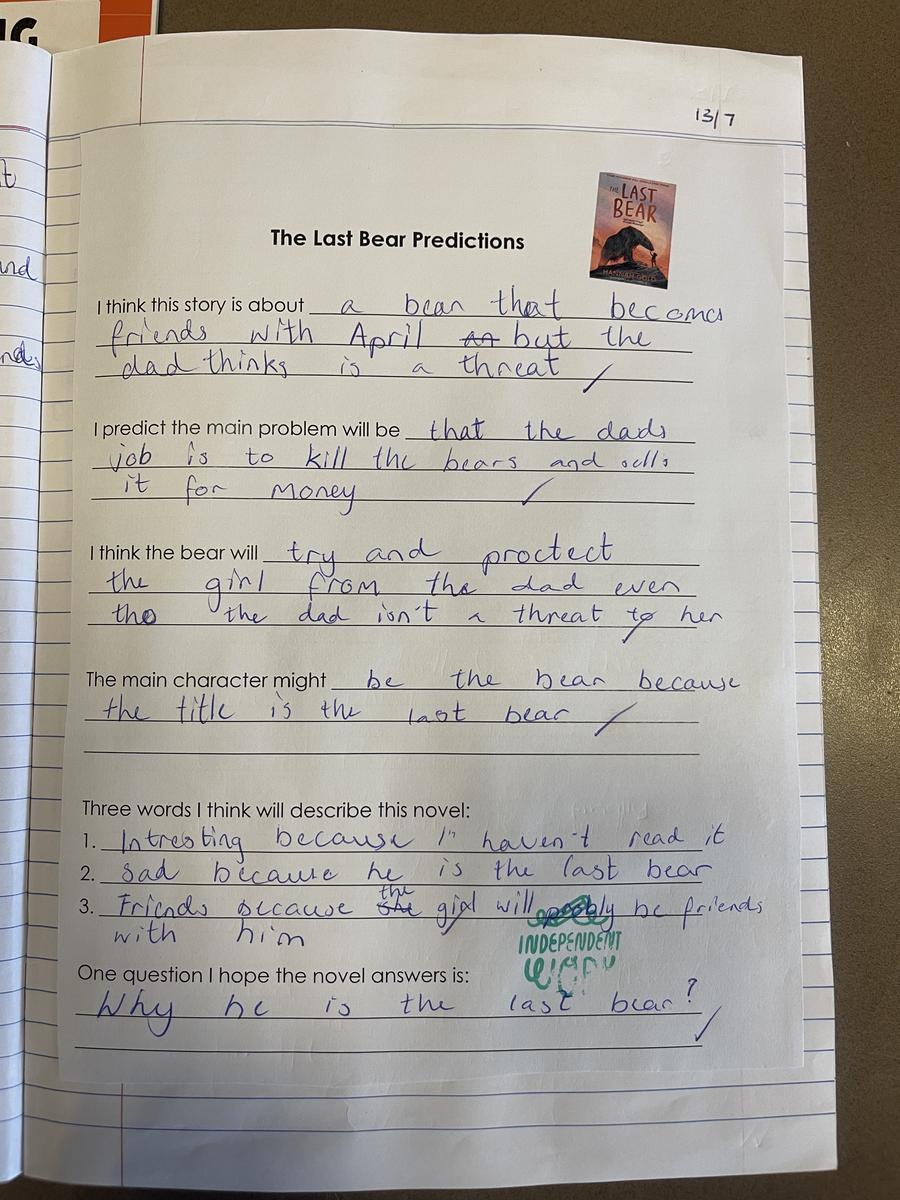 NG
13/7
THE LAST
BEAR
HANNAH GOLD
The Last Bear Predictions
I think this story is about a bear that becomes
friends with April but the
dad thinks is a threat
I predict the main problem will be that the dads
job is to kill the bears and sells
it for money
I think the bear will try and proctect
the girl from the dad even
tho the dad isn't a threat to her
The main character might be the bear because
the title is the last bear
Three words I think will describe this novel:
1. Intresting because I haven't read it
2. Sad because he is the last bear
3. Friends because the girl will be friends
with him
INDEPENDENT
One question I hope the novel answers is:
Why he is the last bear?